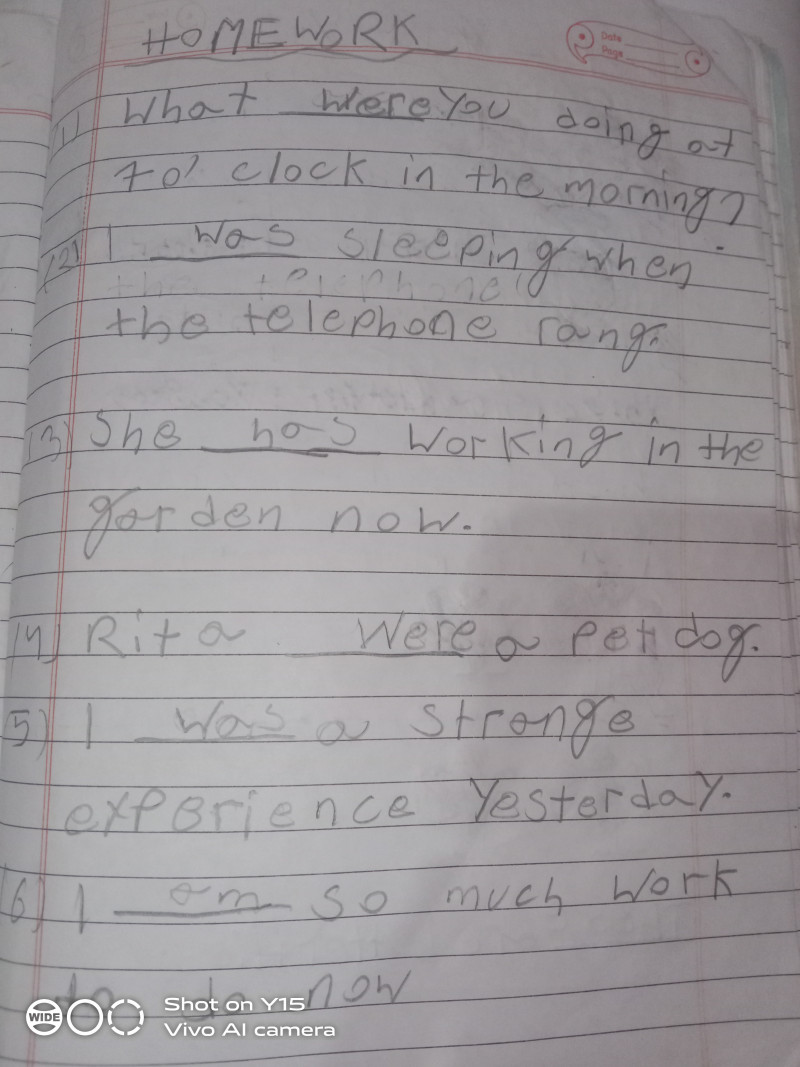 HOMEWORK
Date
Page
1) What were You doing at
70' clock in the morning?
(2) I was sleeping when
the telephone
the telephone rang.
(3) She has working in the
garden now.
(4) Rita were a pet dog.
5) I was a strange
experience Yesterday.
6) I am so much work
to do now
WIDE
Shot on Y15
Vivo AI camera